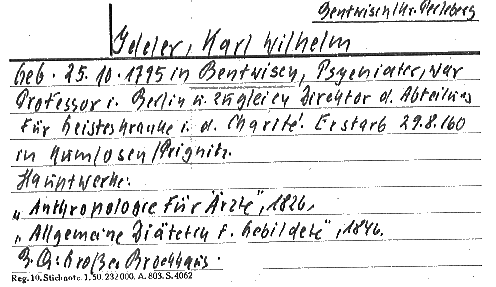 Bentwisch/Kr. Perleberg
Ideler, Karl Wilhelm
geb. 25.10.1795 in Bentwisch, Psychiater, war
Professor i. Berlin u. zugleich Direktor d. Abteilung
für Geisteskranke i. d. Charité. Er starb 29.8.60
in Kumlosen/Prignitz.
Hauptwerke:
„Anthropologie für Ärzte", 1826,
„Allgemeine Diätetik f. Gebildete", 1846.
Großer Brockhaus.
Reg. 10. Stichnote. 1. 50. 232000. A. 803. S. 4062